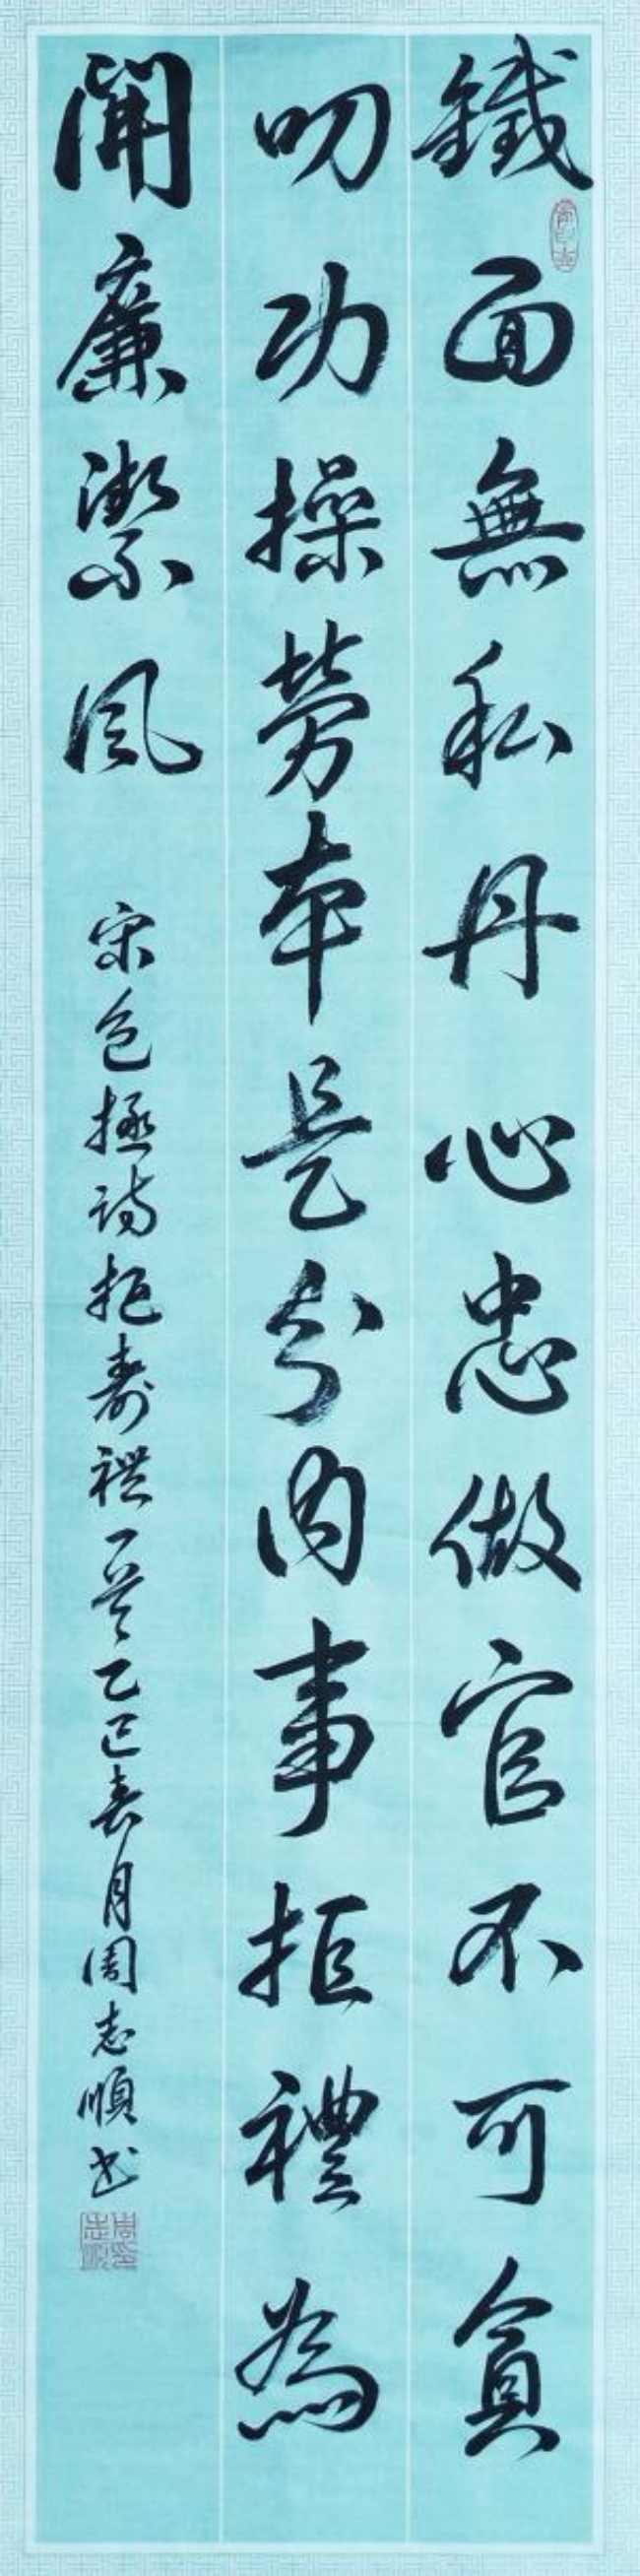 鐵面無私丹心忠做官不可貪
叨功操勞本是分內事拒禮為
開廉潔風　宋包拯詩拒壽禮一首乙巳春月周志順書